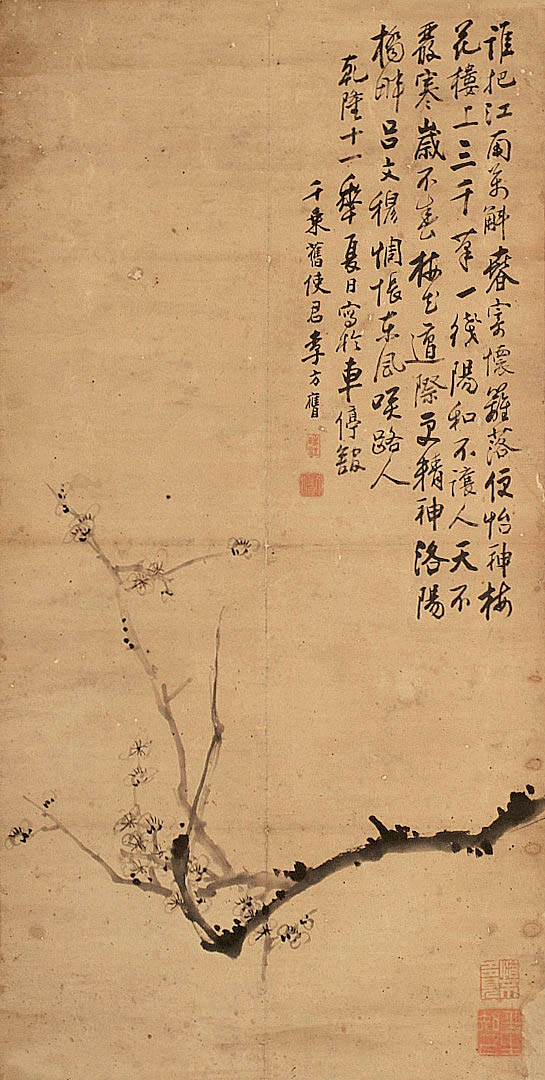 誰把江南萬斛春寄懷籬落便怡神梅
花樓上三千笔一綫陽和不讓人天不
嚴寒歲不春梅花遭際更精神洛陽
橋畔呂文穆惆悵東風咲路人
乾隆十一年夏日寫於車停館
千乘舊使君李方膺